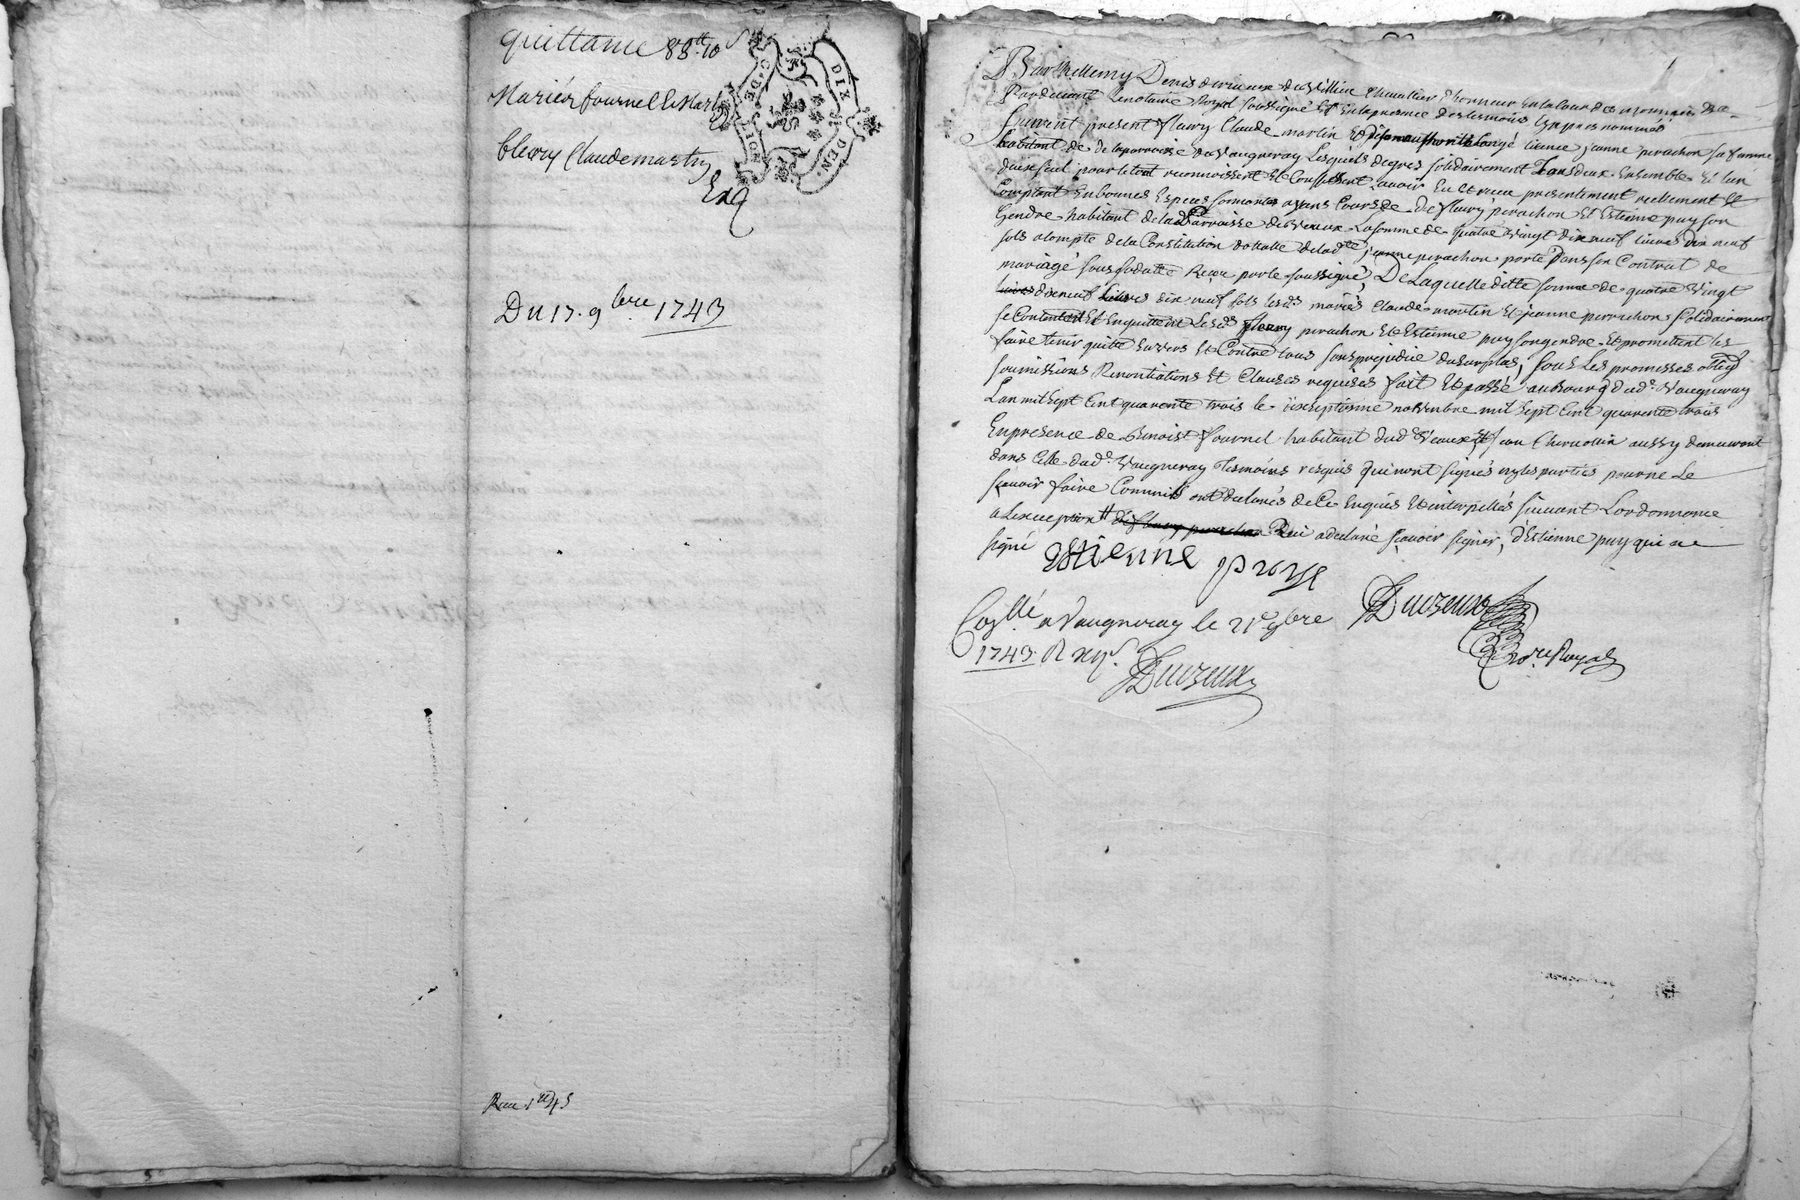 quittance 88ᵗᵗ 10ˢ
Mariés fournel & Martin
fleury Claude martin
Exq
G. DE LION
DIX DEN.
Du 17. 9bre 1743
Reçu
Barthellemy Denis
Pardevant Le notaire Royal soussigné Et En la presence des tesmoins Cy apres nommés
furent present fleury Claude martin Et licence jeanne perachon sa femme
habitant de la parroisse de Vaugneray Lesquels de gres solidairement Tous deux Ensemble Et lun
deux seul pour le tout reconnoissent Et Confessent avoir Eu Et receu presentement reellement Et
Comptant En bonnes Especes sonnantes ayans Cours de fleury perachon Et Estienne puy son
Gendre habitant de la Parroisse de Veaux La somme de quatre Vingt dix neuf livres dix neuf
sols a Compte de la Constitution dottalle de lad.te jeanne perachon porté Dans son Contrat de
mariage sous sa datte Reçu par le soussigné, De Laquelle ditte somme de quatre Vingt
dix neuf livres dix neuf sols lesds mariés Claude martin Et jeanne perrachon solidairement
se Contentent Et En quittent Lesds fleury perachon Et Estienne puy son gendre Et promettent les
faire tenir quitte Envers Et Contre tous sans prejudice du surplus, sous Les promesses oblig.
soumissions Renontiations Et Clauses requises fait Et passé au Bourg dud. Vaugneray
Lan mil sept Cent quarente trois le dixseptieme novembre mil sept Cent quarente trois
En presence de Benoist fournel habitant dud Veaux Et jean aussy demeurant
dans Celle dud. Vaugneray Tesmoins requis qui nont signés ny les parties pour ne Le
sçavoir faire Comme ils ont declarés de Ce Enquis Et interpellés suivant Lordonnance
a Lexception de fleury perachon Qui a declaré sçavoir signer, d'Estienne puy qui a
signé
Estienne puy
Con.llé a Vaugneray le 21e 9bre
1743 R xijs.
Duvzeux
Duvzeux
no.re Royal